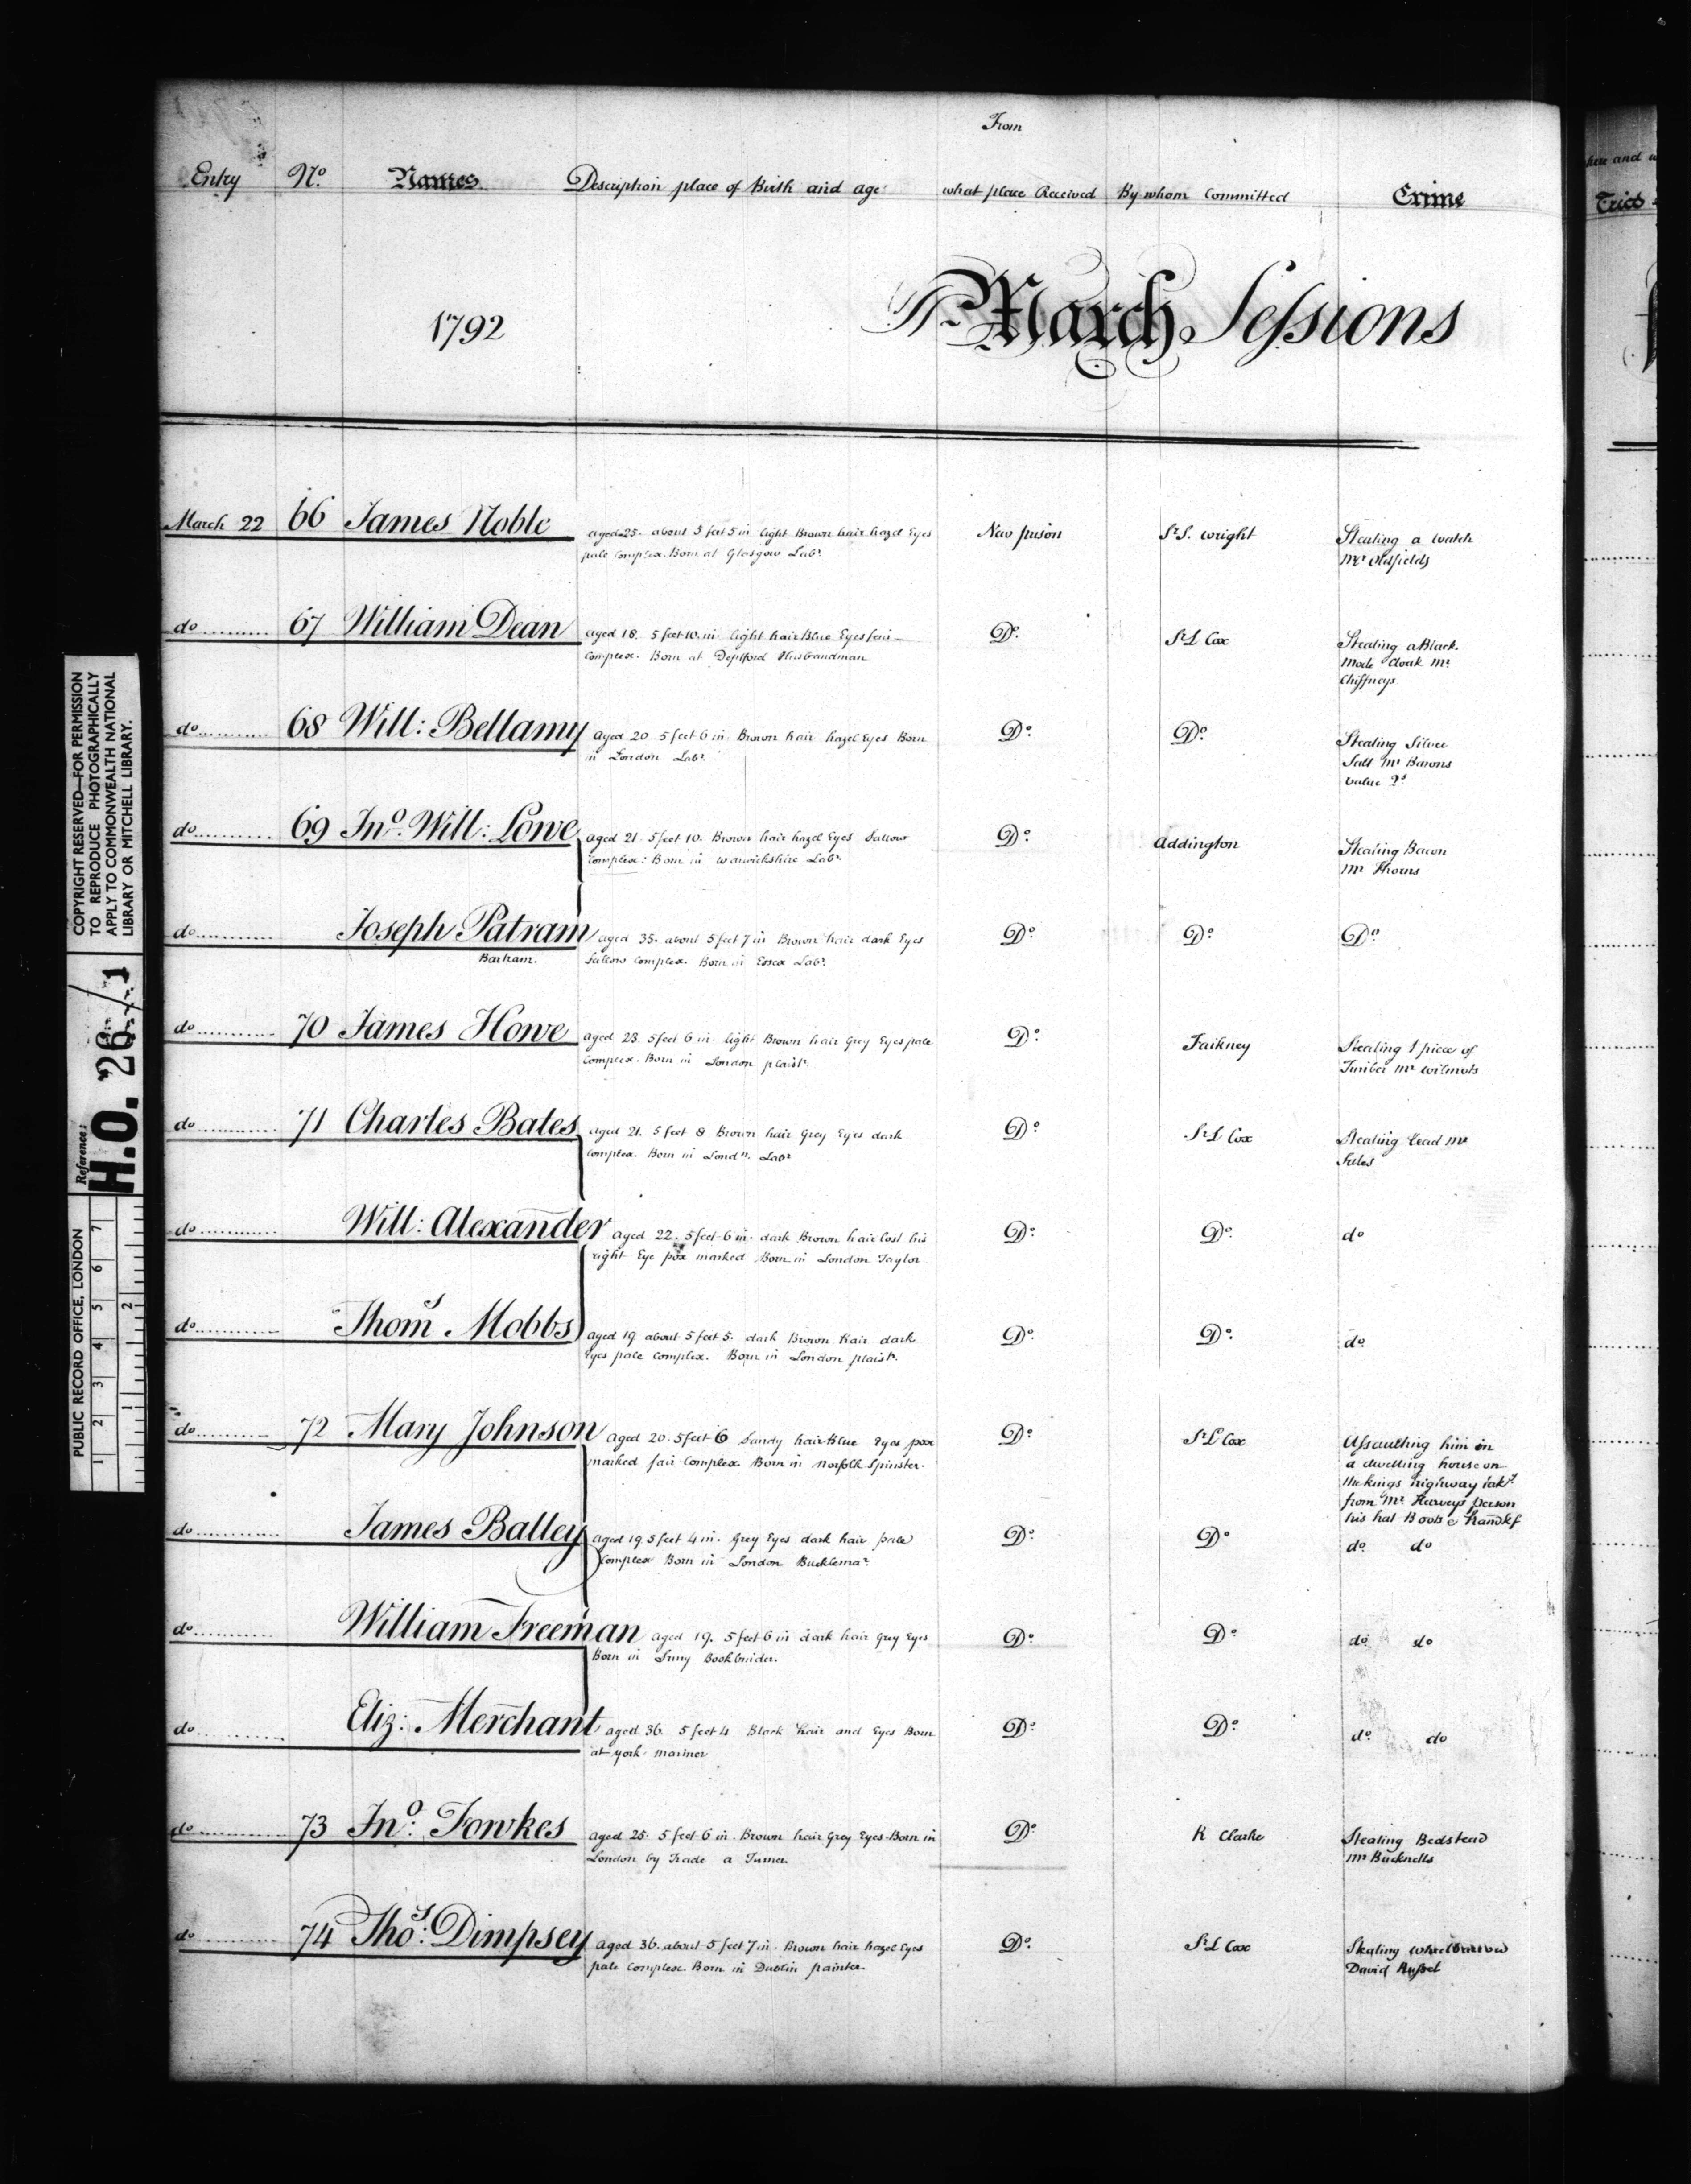 From
Entry No. Names Description place of Birth and age what place Received By whom Committed Crime
1792 March Sessions
March 22 66 James Noble aged 25. about 5 feet 5 in light Brown hair hazel Eyes New prison Sr S. wright Stealing a watch
pale Complex. Born at Glasgow Labr. Mr Oldfields
do 67 William Dean aged 18. 5 feet 10. in light hair Blue Eyes fair Do. Sr L Cox Stealing a Black
Complex. Born at Deptford Husbandman Mode Cloak Mr
Chiffneys
do 68 Will: Bellamy aged 20 5 feet 6 in Brown hair hazel Eyes Born Do. Do. Stealing Silver
in London Labr. Salt Mr Barons
value 2s
do 69 Jno. Will: Lowe aged 21. 5 feet 10. Brown hair hazel Eyes Sallow Do. Addington Stealing Bacon
complex: Born in Warwickshire Labr. Mr Thorns
do Joseph Patram aged 35. about 5 feet 7 in Brown hair dark Eyes Do. Do. Do.
Barham. Sallow Complex. Born in Essex Labr.
do 70 James Howe aged 23. 5 feet 6 in light Brown hair Grey Eyes pale Do. Faikney Stealing 1 piece of
Complex. Born in London plaistr. Timber Mr Wilmots
do 71 Charles Bates aged 21. 5 feet 8 Brown hair Grey Eyes dark Do. Sr L Cox Stealing Lead Mr
Complex. Born in Londn. Labr
do Will: Alexander aged 22. 5 feet 6 in. dark Brown hair lost his Do. Do. do
right Eye pox marked Born in London Taylor
do Thoms Mobbs aged 19 about 5 feet 5. dark Brown hair dark Do. Do. do.
Eyes pale Complex. Born in London plaistr.
do 72 Mary Johnson aged 20. 5 feet 6 Sandy hair Blue Eyes pox Do. Sr L Cox Assaulting him in
marked fair Complex. Born in Norfolk Spinster. a dwelling house on
the kings highway takg
from Mr Harveys person
his hat Boots & Handkf
do James Batley aged 19 5 feet 4 in. Grey Eyes dark hair pale Do. Do do. do
Complex Born in London Bucklemar.
do William Freeman aged 19. 5 feet 6 in dark hair Grey Eyes Do. Do. do. do
Born in Surry Bookbinder.
do Eliz: Merchant aged 36. 5 feet 4 Black hair and Eyes Born Do. Do. do. do
at york mariner
do 73 Jno: Fowkes aged 25. 5 feet 6 in. Brown hair Grey Eyes. Born in Do. R Clarke Stealing Bedstead
London by Trade a Turner. Mr Bucknells
do 74 Thos: Dimpsey aged 36. about 5 feet 7 in. Brown hair hazel Eyes Do. Sr L Cox Stealing wheelbarrow
pale Complex. Born in Dublin painter. David Russel
here and
Tried
COPYRIGHT RESERVED—FOR PERMISSION
TO REPRODUCE PHOTOGRAPHICALLY
APPLY TO COMMONWEALTH NATIONAL
LIBRARY OR MITCHELL LIBRARY.
Reference:
H.O. 26/1
PUBLIC RECORD OFFICE, LONDON
1 2 3 4 5 6 7
1 2